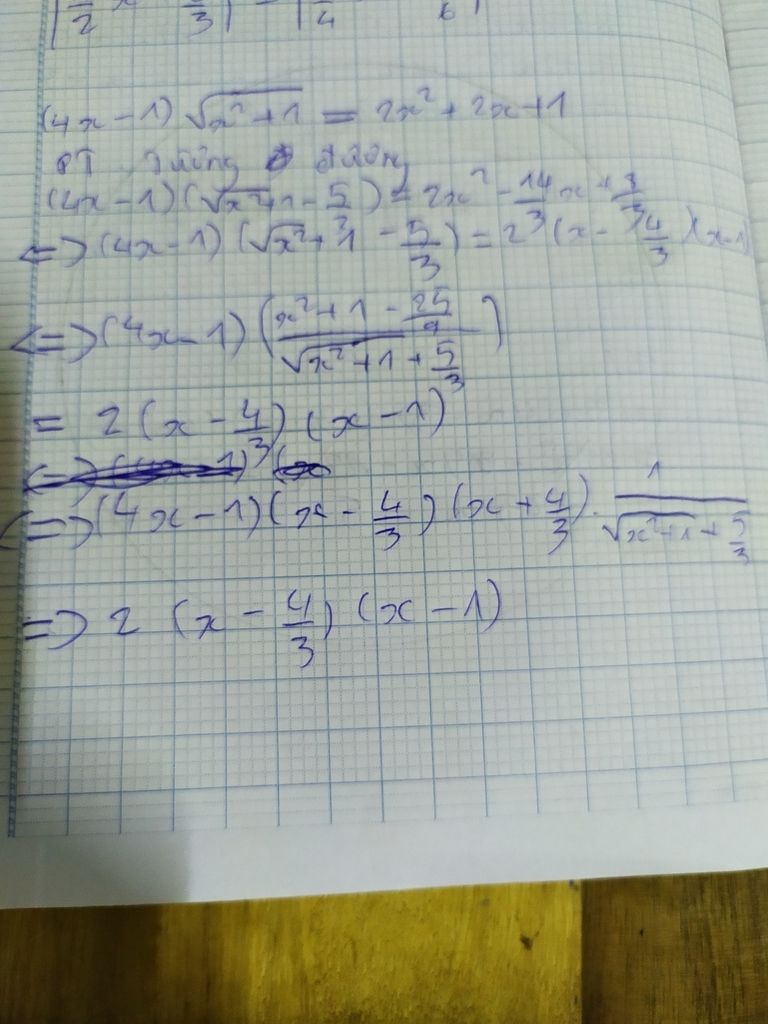 (4x - 1) √(x² + 1) = 2x² + 2x + 1
PT tương đương
(4x - 1) (√(x² + 1) - 5/3) = 2x² - 14/3 x + 8/3
<=> (4x - 1) (√(x² + 1) - 5/3) = 2 (x - 4/3)(x - 1)
<=> (4x - 1) ((x² + 1 - 25/9)/(√(x² + 1) + 5/3))
= 2 (x - 4/3) (x - 1)
<=> (4x - 1) (x - 4/3) (x + 4/3) . 1/(√(x² + 1) + 5/3)
=> 2 (x - 4/3) (x - 1)